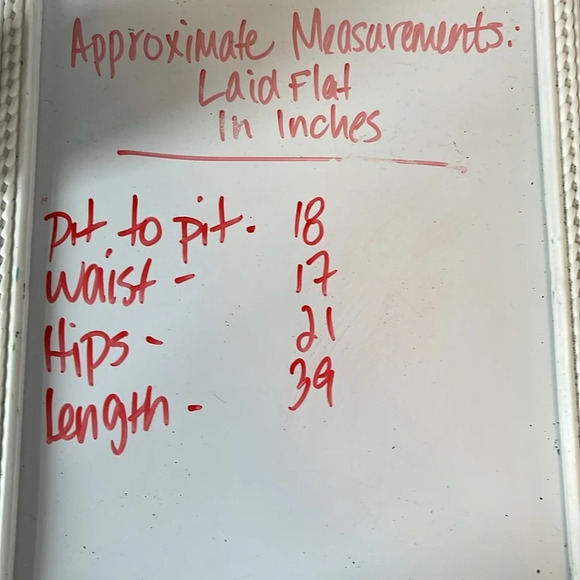 Approximate Measurements:
Laid Flat
In Inches
Pit to pit. 18
Waist - 17
Hips - 21
Length - 39